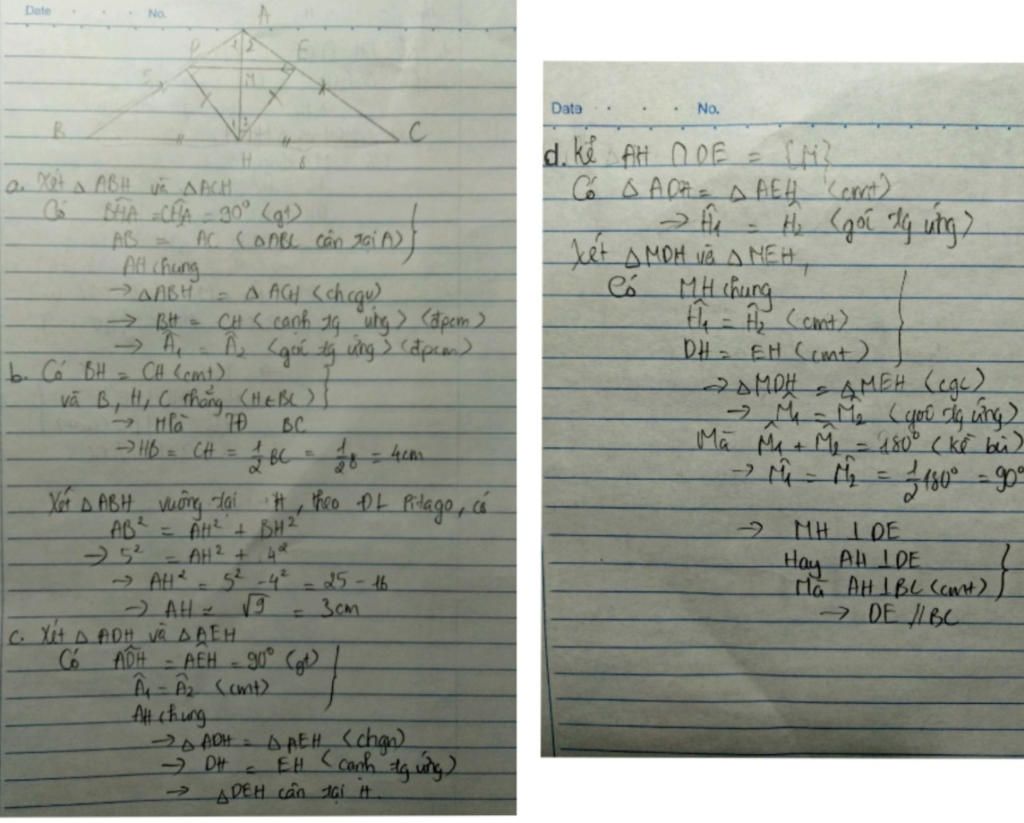 Date No.
A
1 2
D E
M
5
1 2
B C
H 8
a. Xét △ ABH và △ACH
Có BĤA = CĤA = 90° (gt)
AB = AC (△ABC cân tại A)
AH chung
→ △ABH = △ ACH (chcgv)
→ BH = CH (cạnh tg ứng) (đpcm)
→ Â₁ = Â₂ (góc tg ứng) (đpcm)
b. Có BH = CH (cmt)
và B, H, C thẳng (H∈BC)
→ H là TĐ BC
→ HB = CH = 1/2 BC = 1/2 8 = 4cm
Xét △ABH vuông tại H, theo ĐL Pitago, có
AB² = AH² + BH²
→ 5² = AH² + 4²
→ AH² = 5² - 4² = 25 - 16
→ AH = √9 = 3cm
c. Xét △ ADH và △AEH
Có AD̂H = AÊH = 90° (gt)
Â₁ = Â₂ (cmt)
AH chung
→ △ ADH = △ AEH (chgn)
→ DH = EH (cạnh tg ứng)
→ △DEH cân tại H.
Date No.
d. Kẻ AH ∩ DE = {M}
Có △ ADH = △ AEH (cmt)
→ Ĥ₁ = Ĥ₂ (góc tg ứng)
Xét △MDH và △MEH,
Có MH chung
Ĥ₁ = Ĥ₂ (cmt)
DH = EH (cmt)
→ △MDH = △MEH (cgc)
→ M̂₁ = M̂₂ (góc tg ứng)
Mà M̂₁ + M̂₂ = 180° (kề bù)
→ M̂₁ = M̂₂ = 1/2 180° = 90°
→ MH ⊥ DE
Hay AH ⊥ DE
Mà AH ⊥ BC (cmt)
→ DE // BC